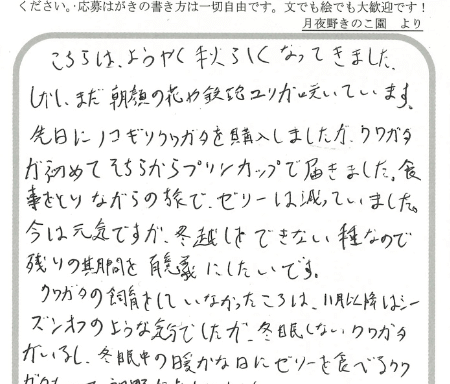 ください。応募はがきの書き方は一切自由です。文でも絵でも大歓迎です！
月夜野きのこ園　より
こちらは、ようやく秋らしくなってきました。
しかし、まだ朝顔の花や鉄砲ユリが咲いています。
先日にノコギリクワガタを購入しましたが、クワガタ
が初めてそちらからプリンカップで届きました。食
事をとりながらの旅で、ゼリーは減っていました。
今は元気ですが、冬越しをできない種なので
残りの期間を有意義にしたいです。
クワガタの飼育をしていなかったころは、11月以降はシー
ズンオフのような気分でしたが、冬眠しないクワガタ
がいるし、冬眠中の暖かな日にゼリーを食べるクワ